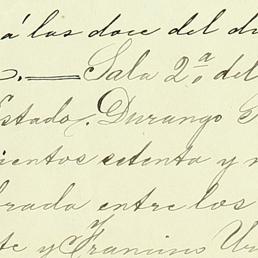 á las doce del d
s.— Sala 2ª del
Estado. Durango
ientos setenta y n
brada entre los
te y Francisco Ur